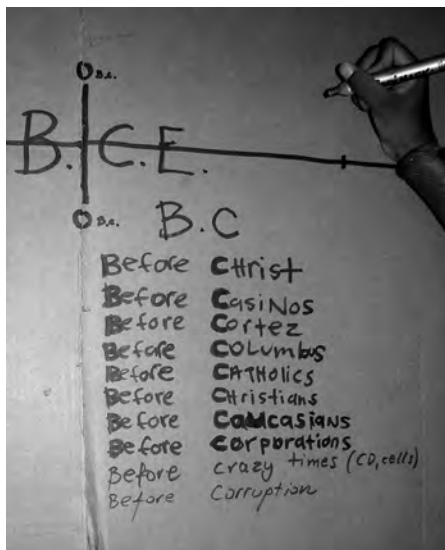 B.C.
B.C.E.
B.C.
B.C
Before CHrist
Before CasiNos
Before Cortez
Before COLumbus
Before CATHOLICS
Before CHristians
Before Caucasians
Before Corporations
Before crazy times (CD, cells)
Before Corruption